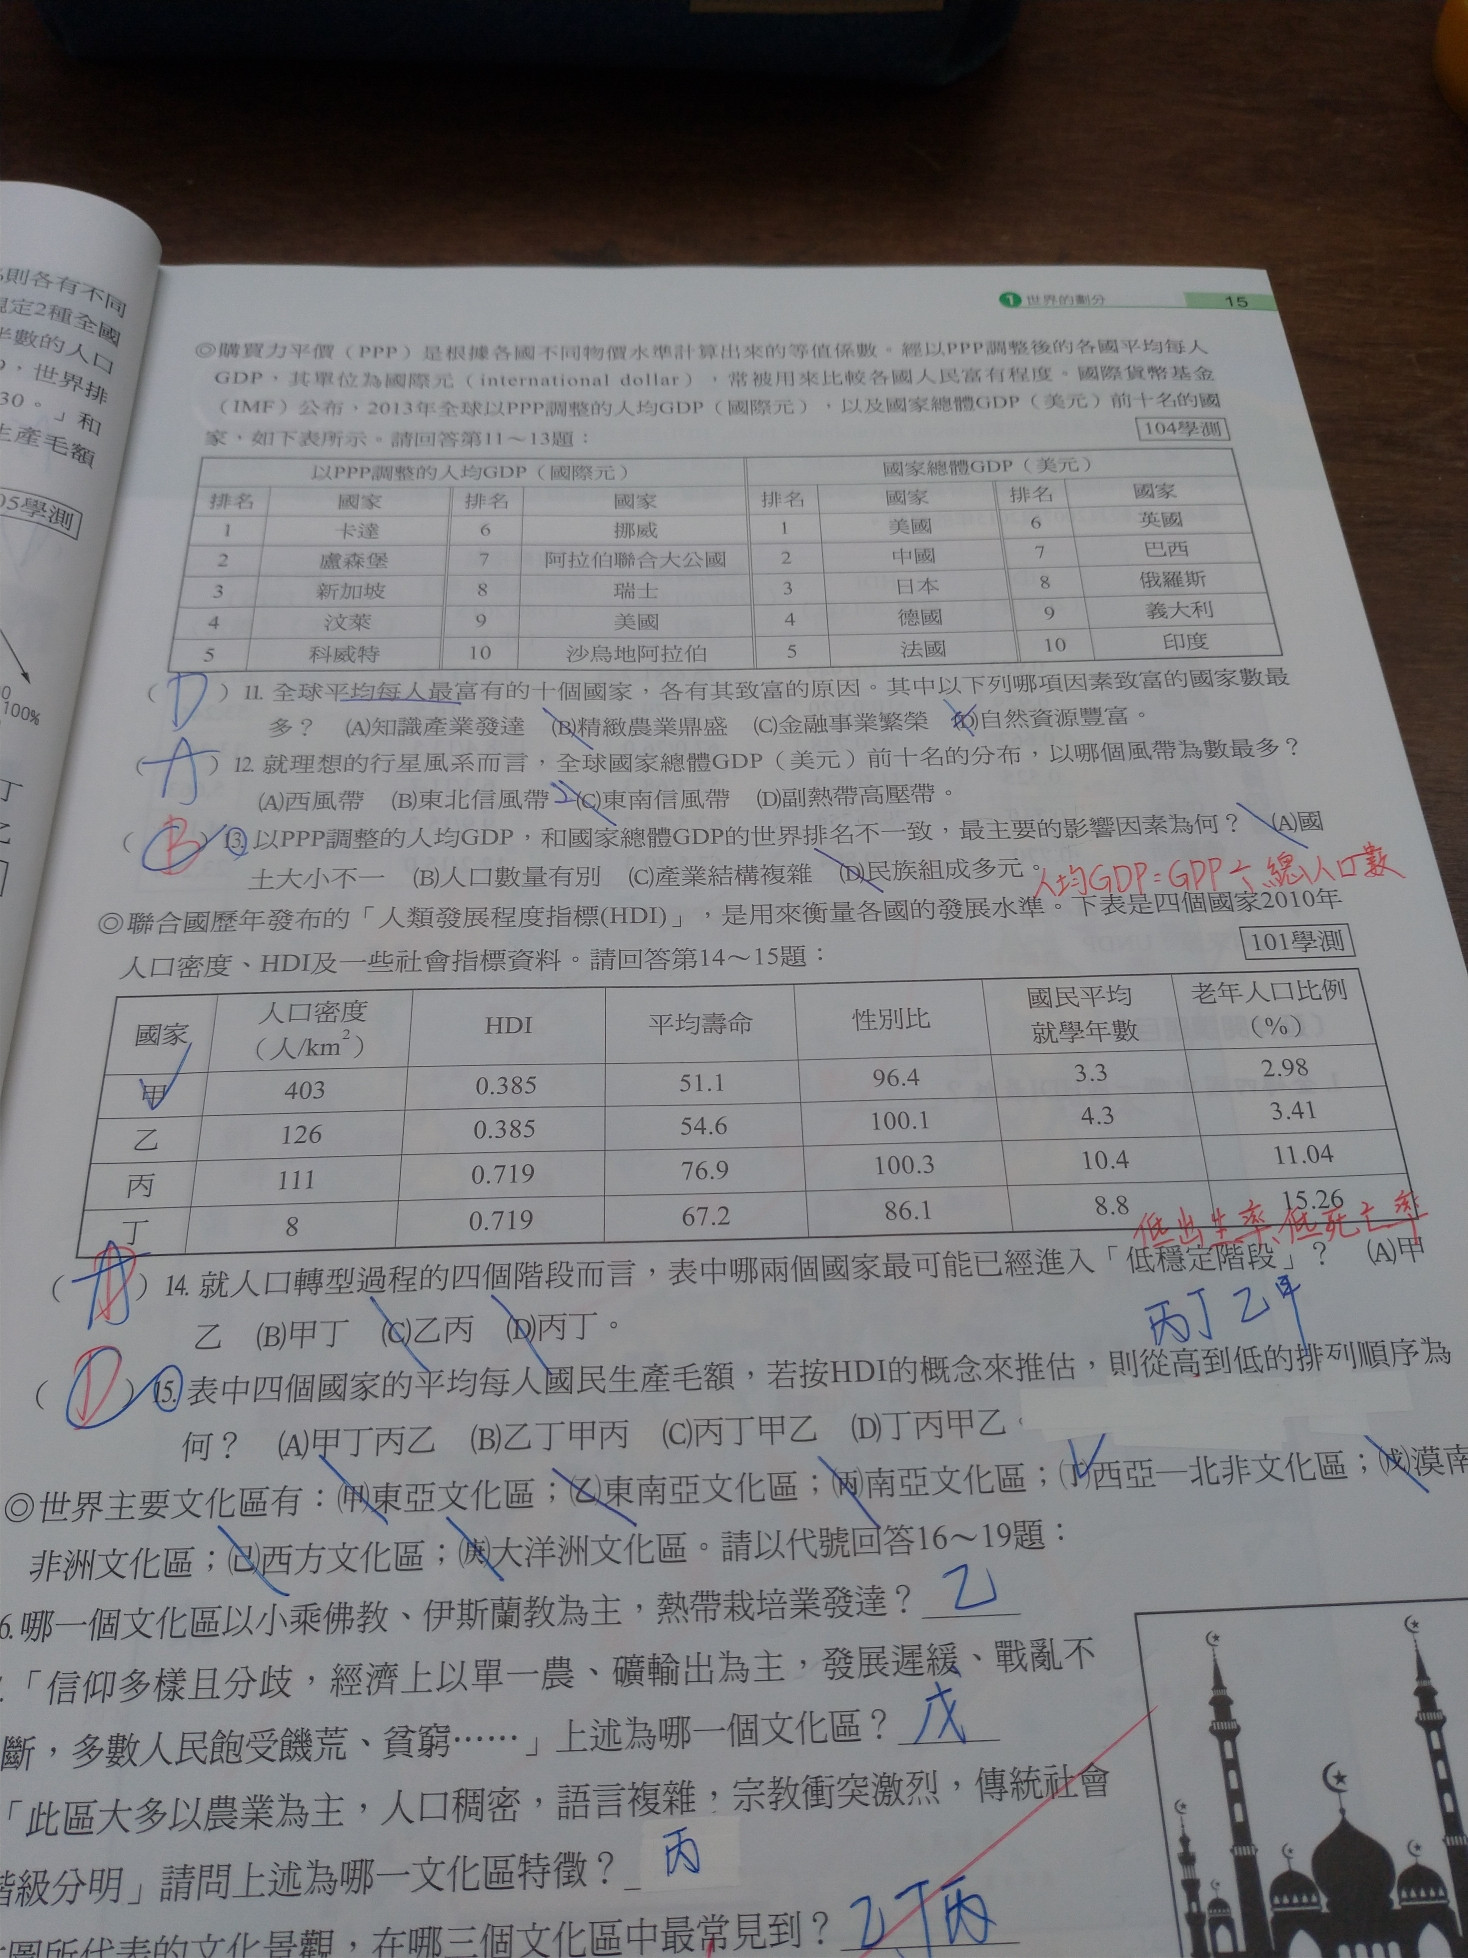 則各有不同
定2種全國
半數的人口
,世界排
30。」和
生產毛額
05學測
100%
1 世界的劃分 15
◎購買力平價（PPP）是根據各國不同物價水準計算出來的等值係數。經以PPP調整後的各國平均每人
GDP，其單位為國際元（international dollar），常被用來比較各國人民富有程度。國際貨幣基金
（IMF）公布，2013年全球以PPP調整的人均GDP（國際元），以及國家總體GDP（美元）前十名的國
家，如下表所示。請回答第11～13題： 104學測
以PPP調整的人均GDP（國際元） 國家總體GDP（美元）
排名 國家 排名 國家 排名 國家 排名 國家
1 卡達 6 挪威 1 美國 6 英國
2 盧森堡 7 阿拉伯聯合大公國 2 中國 7 巴西
3 新加坡 8 瑞士 3 日本 8 俄羅斯
4 汶萊 9 美國 4 德國 9 義大利
5 科威特 10 沙烏地阿拉伯 5 法國 10 印度
（D）11. 全球平均每人最富有的十個國家，各有其致富的原因。其中以下列哪項因素致富的國家數最
多？ (A)知識產業發達 (B)精緻農業鼎盛 (C)金融事業繁榮 (D)自然資源豐富。
（A）12. 就理想的行星風系而言，全球國家總體GDP（美元）前十名的分布，以哪個風帶為數最多？
(A)西風帶 (B)東北信風帶 (C)東南信風帶 (D)副熱帶高壓帶。
（B）13. 以PPP調整的人均GDP，和國家總體GDP的世界排名不一致，最主要的影響因素為何？ (A)國
土大小不一 (B)人口數量有別 (C)產業結構複雜 (D)民族組成多元。
人均GDP=GPP÷總人口數
◎聯合國歷年發布的「人類發展程度指標(HDI)」，是用來衡量各國的發展水準。下表是四個國家2010年
人口密度、HDI及一些社會指標資料。請回答第14～15題： 101學測
國家 人口密度（人/km²） HDI 平均壽命 性別比 國民平均就學年數 老年人口比例（%）
甲 403 0.385 51.1 96.4 3.3 2.98
乙 126 0.385 54.6 100.1 4.3 3.41
丙 111 0.719 76.9 100.3 10.4 11.04
丁 8 0.719 67.2 86.1 8.8 15.26
低出生率、低死亡率
（D）14. 就人口轉型過程的四個階段而言，表中哪兩個國家最可能已經進入「低穩定階段」？ (A)甲
乙 (B)甲丁 (C)乙丙 (D)丙丁。
丙丁乙甲
（D）15. 表中四個國家的平均每人國民生產毛額，若按HDI的概念來推估，則從高到低的排列順序為
何？ (A)甲丁丙乙 (B)乙丁甲丙 (C)丙丁甲乙 (D)丁丙甲乙
◎世界主要文化區有：(甲)東亞文化區；(乙)東南亞文化區；(丙)南亞文化區；(丁)西亞—北非文化區；(戊)漠南
非洲文化區；(己)西方文化區；(庚)大洋洲文化區。請以代號回答16～19題：
6. 哪一個文化區以小乘佛教、伊斯蘭教為主，熱帶栽培業發達？乙
「信仰多樣且分歧，經濟上以單一農、礦輸出為主，發展遲緩、戰亂不
斷，多數人民飽受饑荒、貧窮……」上述為哪一個文化區？戊
「此區大多以農業為主，人口稠密，語言複雜，宗教衝突激烈，傳統社會
階級分明」請問上述為哪一文化區特徵？丙
圖所代表的文化景觀，在哪三個文化區中最常見到？乙丁丙